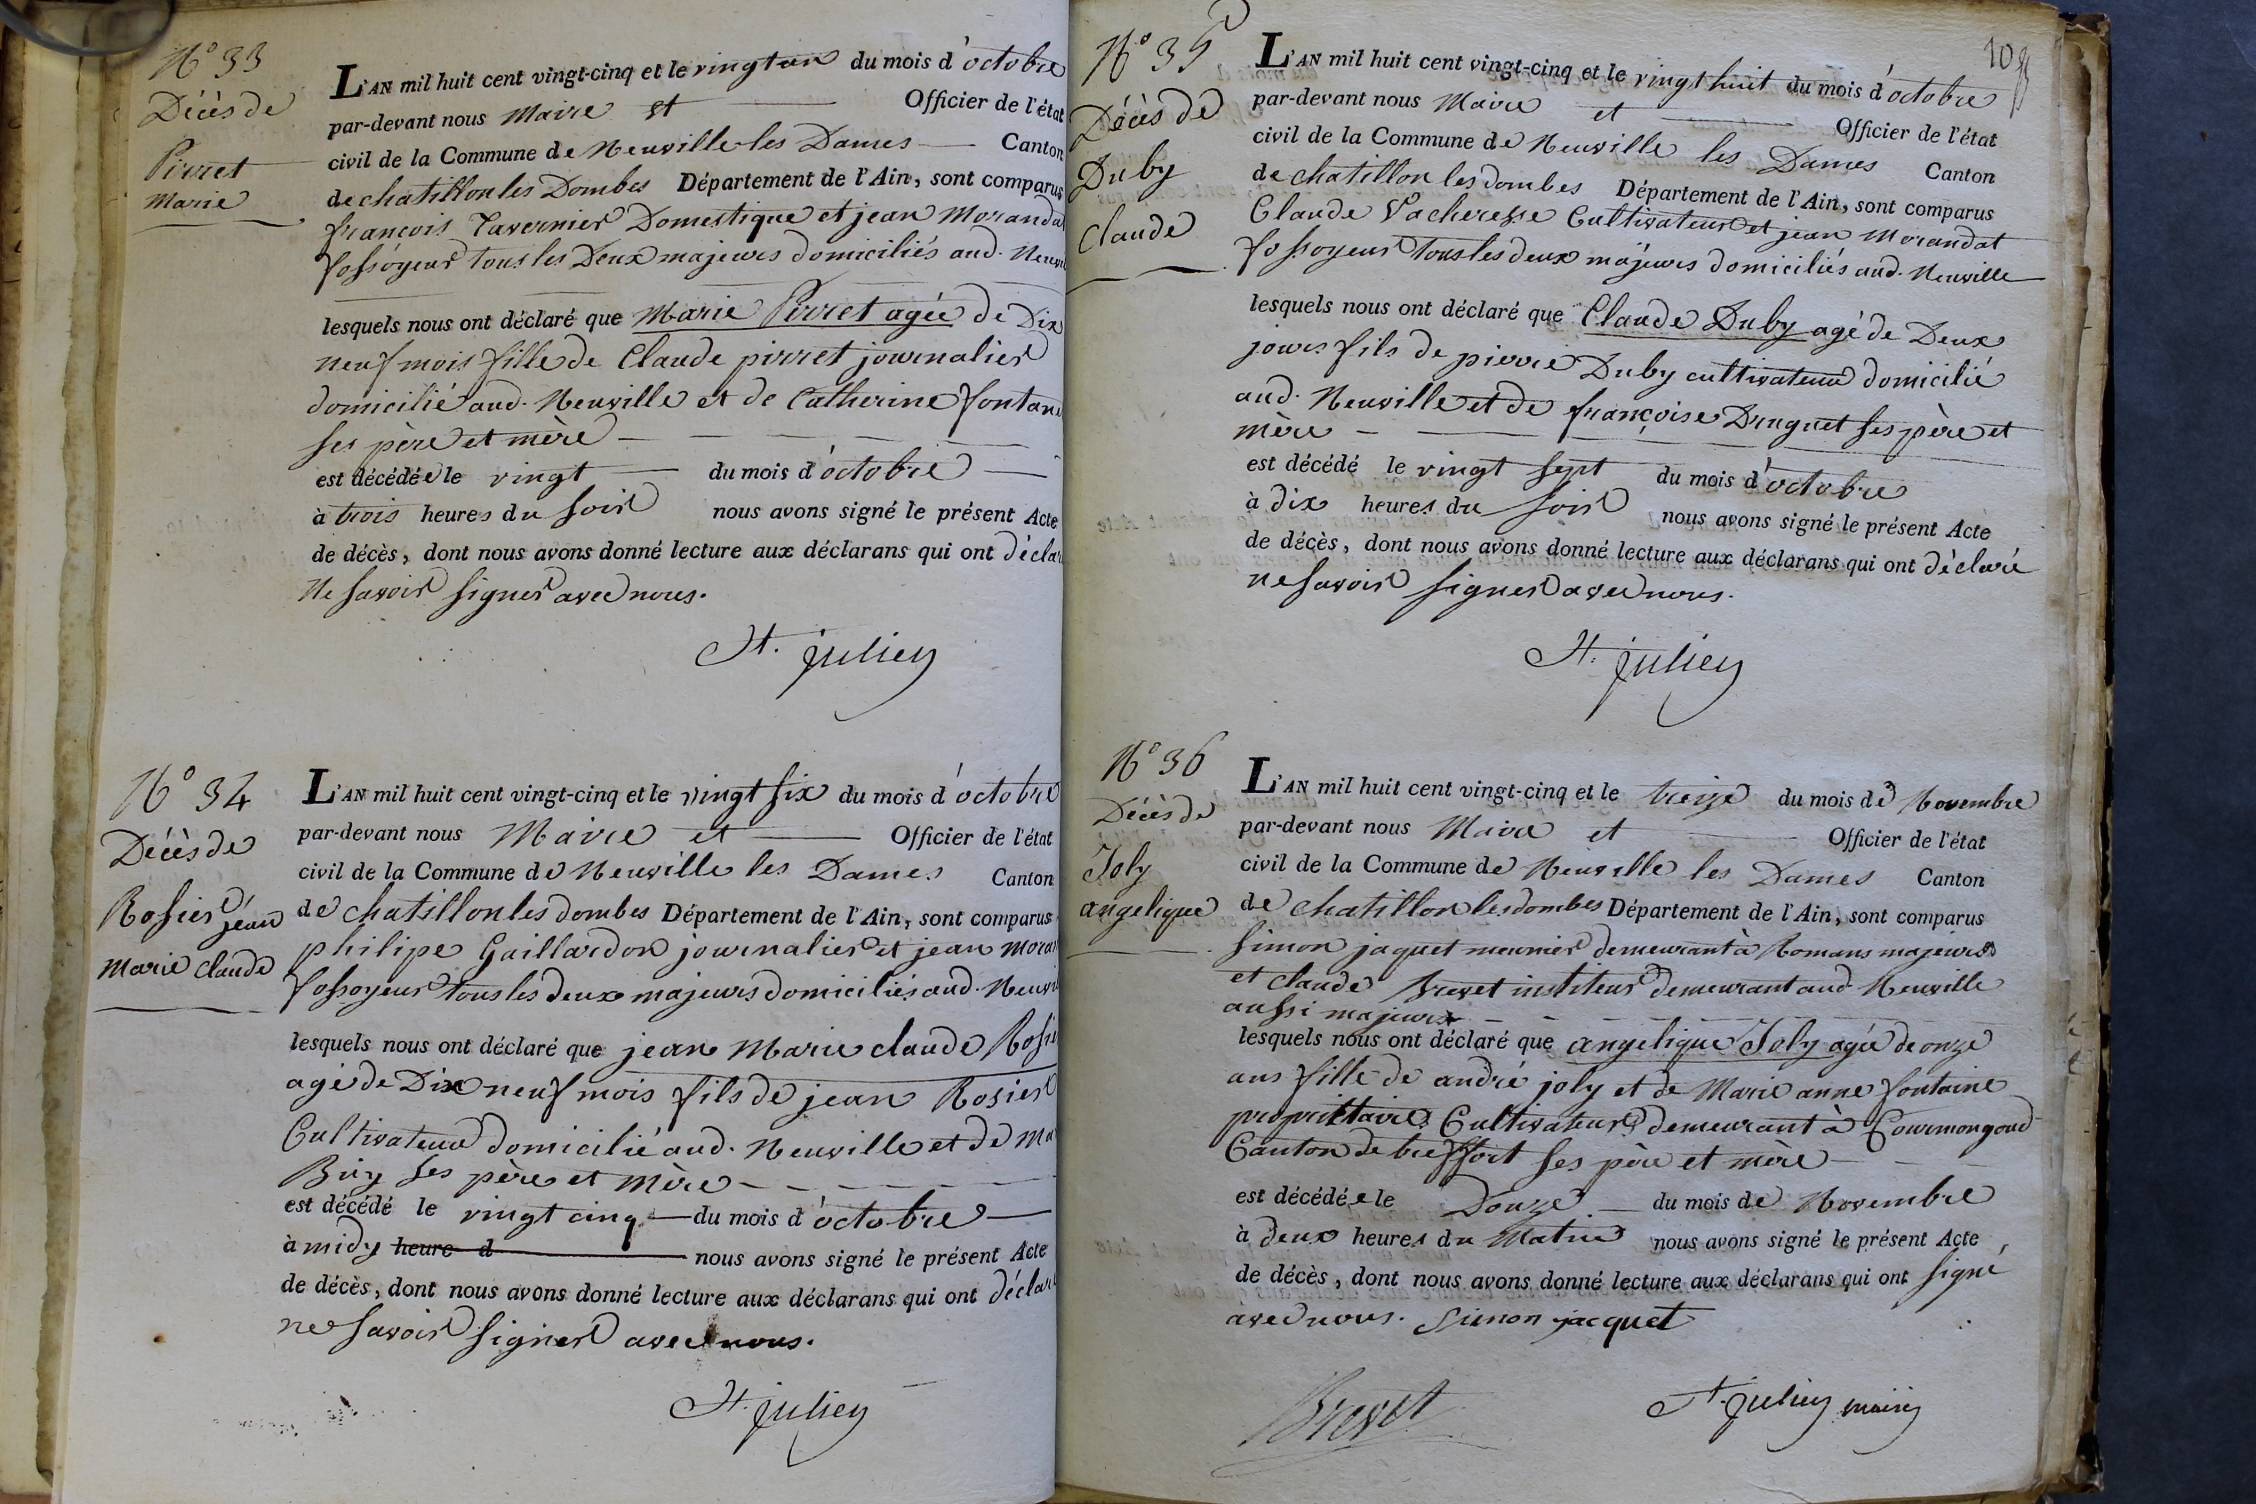 N° 33
Décès de
Pirret
Marie
L'AN mil huit cent vingt-cinq et le vingt un du mois d'octobre
par-devant nous Maire et Officier de l'état
civil de la Commune de Neuville les Dames Canton
de chatillon les Dombes Département de l'Ain, sont comparus
françois Tavernier Domestique et jean Morandat
fossoyeur tous les Deux majeurs domiciliés aud. Neuvil
lesquels nous ont déclaré que Marie Pirret agée de Dix
neuf mois fille de Claude pirret journalier
domicilié aud. Neuville et de Catherine fontane
ses père et mère
est décédée le vingt du mois d'octobre
à trois heures du soir nous avons signé le présent Acte
de décès, dont nous avons donné lecture aux déclarans qui ont déclar
Ne savoir signer avec nous.
St. julien
N° 34
Décès de
Rosier jean
Marie claude
L'AN mil huit cent vingt-cinq et le vingt six du mois d'octobre
par-devant nous Maire et Officier de l'état
civil de la Commune de Neuville les Dames Canton
de chatillon les dombes Département de l'Ain, sont comparus
philipe Gaillardon journalier et jean Moran
fossoyeur tous les deux majeurs domiciliés aud. Neuvil
lesquels nous ont déclaré que jean Marie claude Rosie
agé de Dix neuf mois fils de jean Rosier
Cultivateur domicilié aud. Neuville et de Ma
ses père et Mère
est décédé le vingt cinq du mois d'octobre
à midy heure d nous avons signé le présent Acte
de décès, dont nous avons donné lecture aux déclarans qui ont déclar
ne savoir signer avec nous.
St. julien
108
N° 35
Décès de
Duby
Claude
L'AN mil huit cent vingt-cinq et le vingt huit du mois d'octobre
par-devant nous Maire et Officier de l'état
civil de la Commune de Neuville les Dames Canton
de chatillon les dombes Département de l'Ain, sont comparus
Claude Vacheresse Cultivateur et jean Morandat
fossoyeur tous les deux majeurs domiciliés aud. Neuville
lesquels nous ont déclaré que Claude Duby agé de Deux
jours fils de pierre Duby cultivateur domicilié
aud. Neuville et de françoise Druguet ses père et
mère
est décédé le vingt sept du mois d'octobre
à dix heures du soir nous avons signé le présent Acte
de décès, dont nous avons donné lecture aux déclarans qui ont déclaré
ne savoir signer avec nous.
St. julien
N° 36
Décès de
Joly
angelique
L'AN mil huit cent vingt-cinq et le treize du mois de Novembre
par-devant nous Maire et Officier de l'état
civil de la Commune de Neuville les Dames Canton
de chatillon les dombes Département de l'Ain, sont comparus
Simon jaquet meunier demeurant à Romans majeur
et claude Brevet instituteur demeurant aud. Neuville
aussi majeur
lesquels nous ont déclaré que angelique Joly agée de onze
ans fille de andré joly et de Marie anne fontaine
proprietaires Cultivateurs demeurant à Courmangoud
Canton de treffort ses père et mère
est décédée le Douze du mois de Novembre
à deux heures du Matin nous avons signé le présent Acte
de décès, dont nous avons donné lecture aux déclarans qui ont signé
avec nous. Simon jacquet
Brevet
St. julien maire